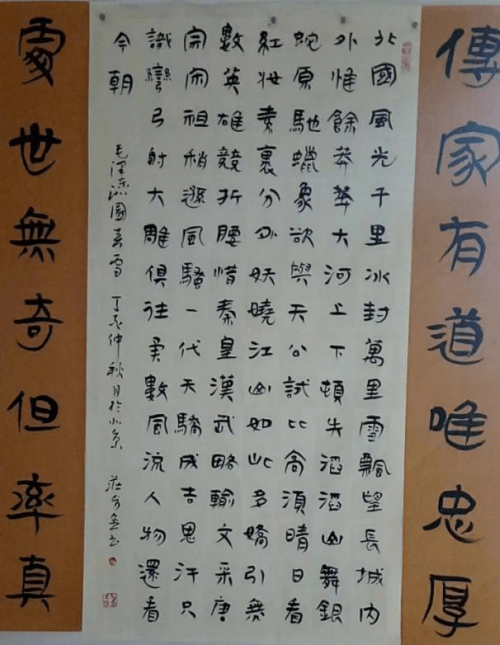 傳家有道唯忠厚
北國風光千里冰封萬里雪飄望長城內
外惟餘莽莽大河上下頓失滔滔山舞銀
蛇原馳蠟象欲與天公試比高須晴日看
紅妝素裹分外妖嬈江山如此多嬌引無
數英雄競折腰惜秦皇漢武略輸文采唐
宗宋祖稍遜風騷一代天驕成吉思汗只
識彎弓射大雕俱往矣數風流人物還看
今朝
毛澤東沁園春雪 丁亥仲秋月於北京 書
處世無奇但率真